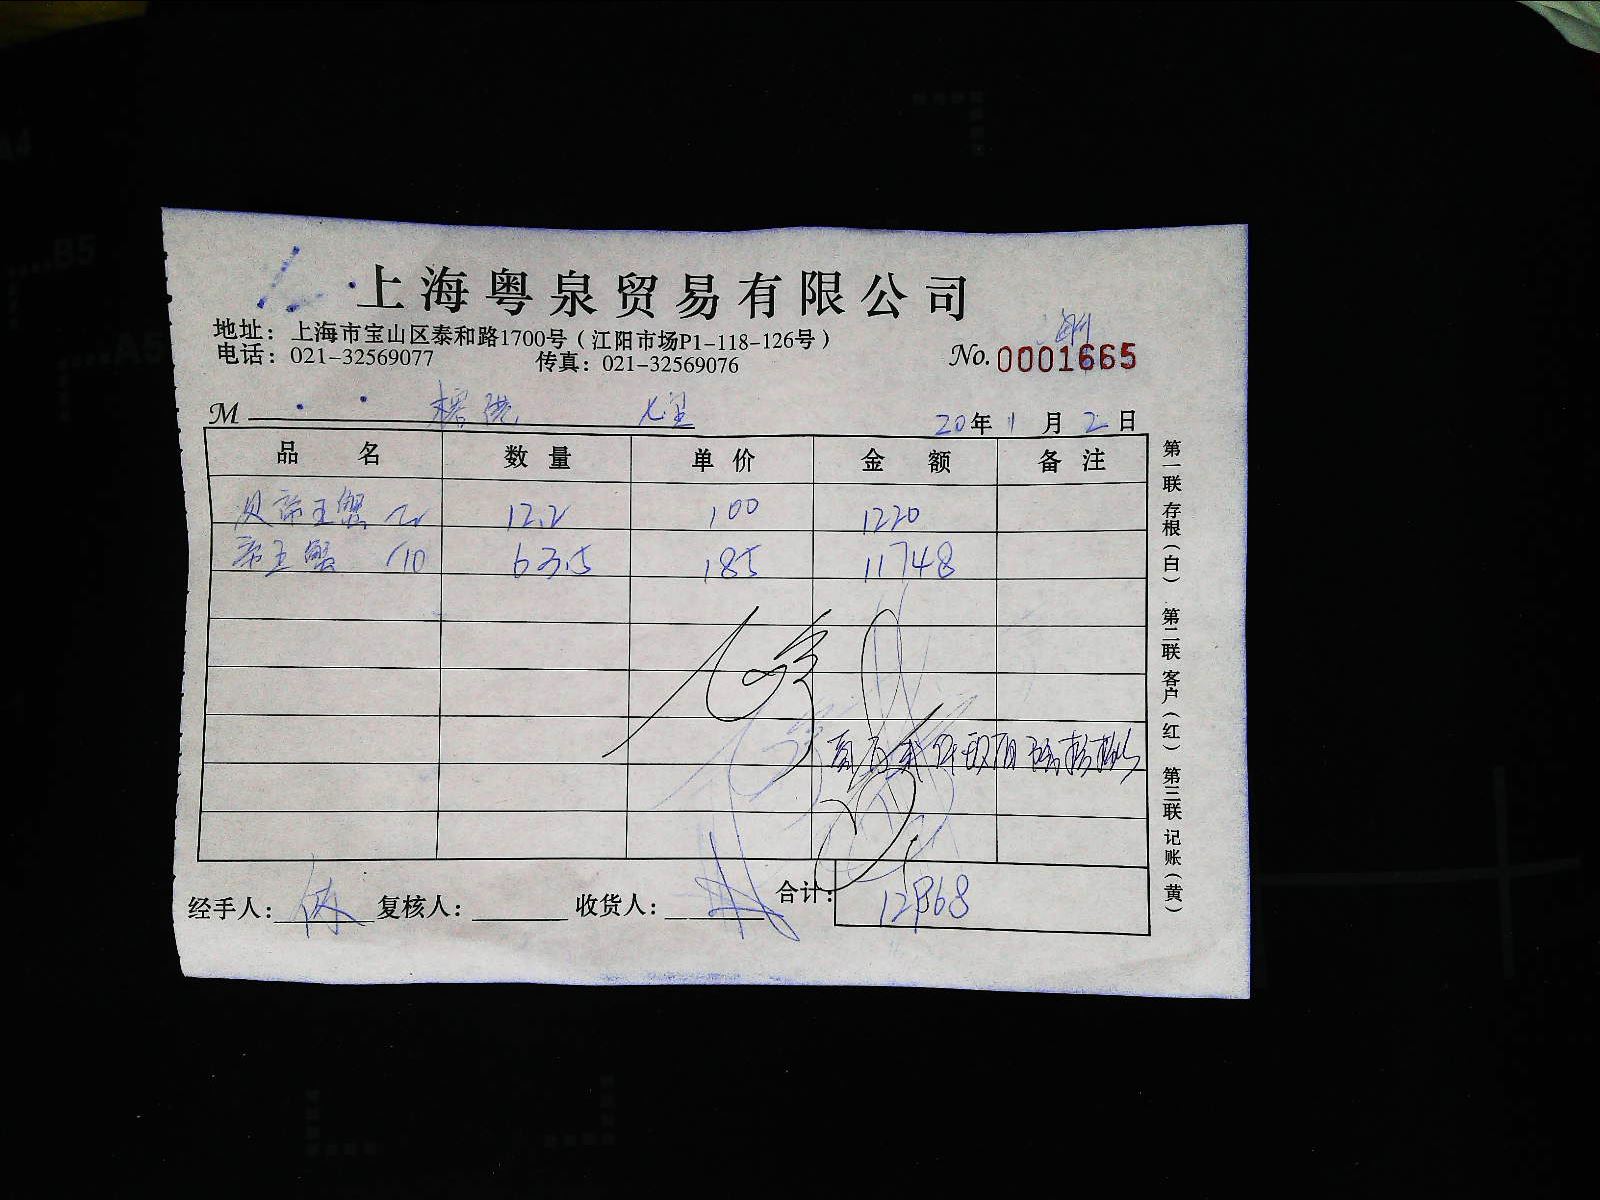 上海粤泉贸易有限公司
地址：上海市宝山区泰和路1700号（江阳市场P1-118-126号）
电话：021-32569077 传真：021-32569076
No. 0001665
M
20年 1月 2日
品名 数量 单价 金额 备注
帝王蟹 12.2 100 1220
帝王蟹 /10 63.5 185 11748
经手人： 复核人： 收货人： 合计：12968
第一联 存根（白） 第二联 客户（红） 第三联 记账（黄）